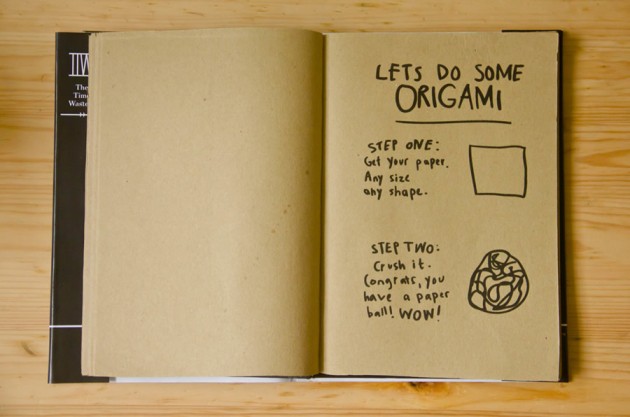 The
Time
Waste
LETS DO SOME
ORIGAMI
STEP ONE:
Get your paper.
Any size
any shape.
STEP TWO:
Crush it.
Congrats, you
have a paper
ball! WOW!